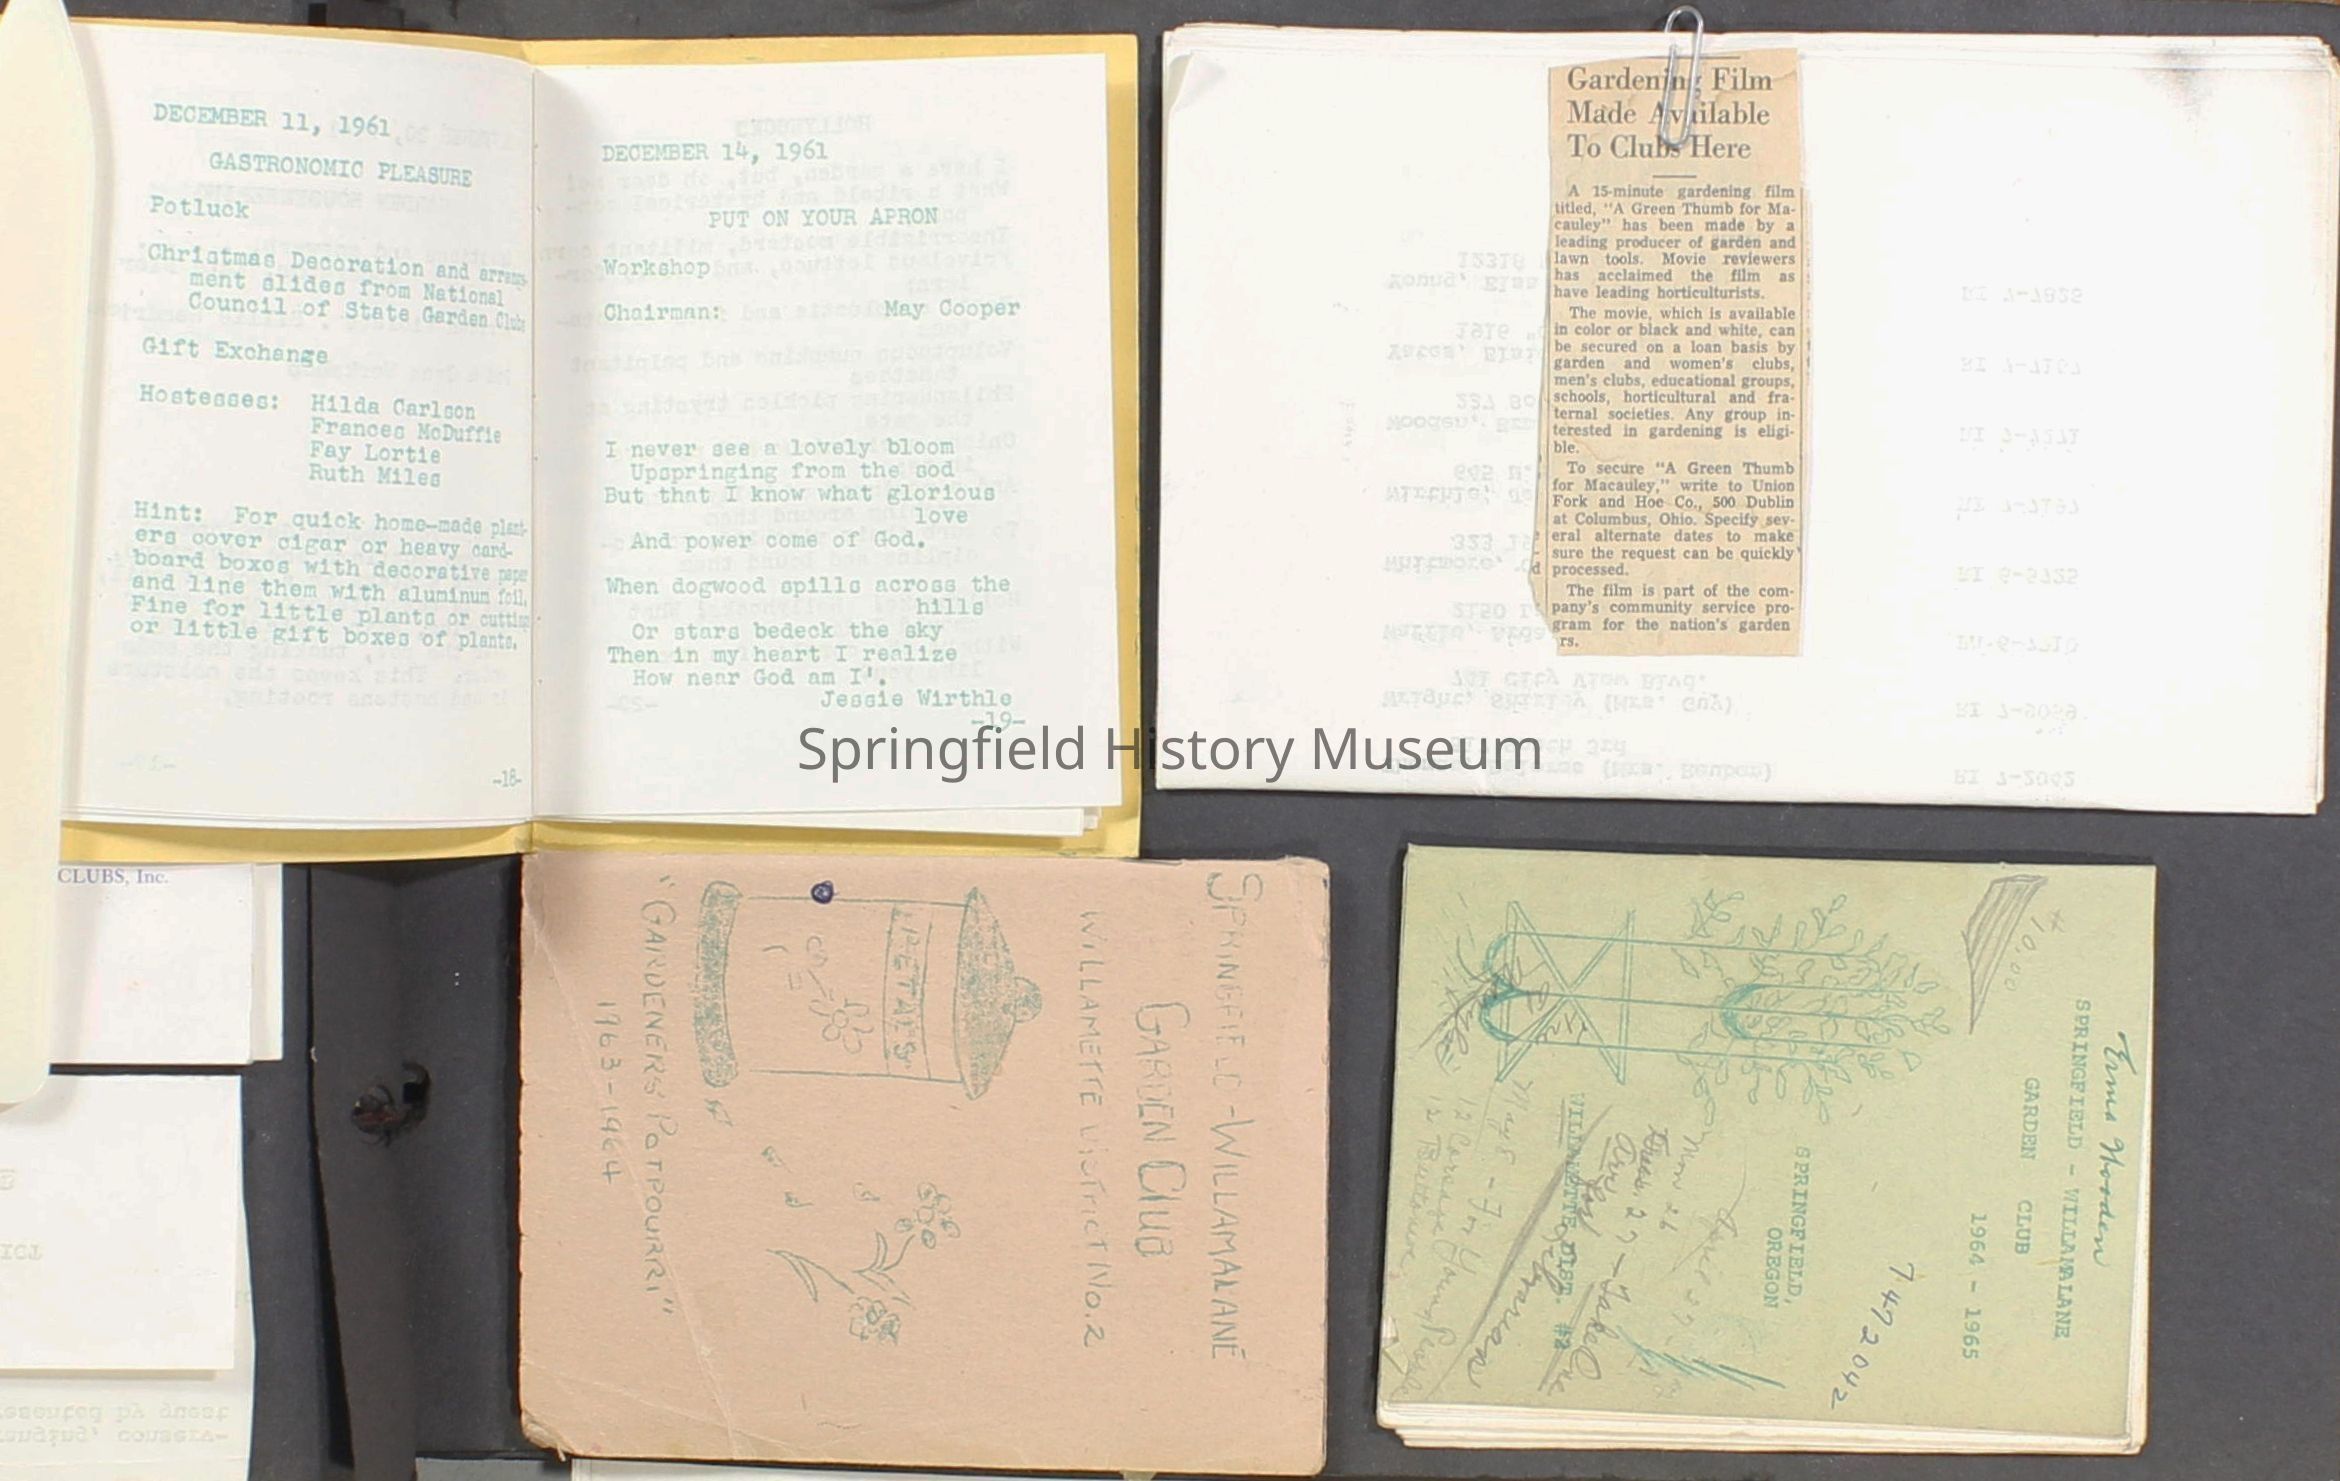 DECEMBER 11, 1961
GASTRONOMIC PLEASURE
Potluck
Christmas Decoration and arrange-
ment slides from National
Council of State Garden Clubs
Gift Exchange
Hostesses: Hilda Carlson
Frances McDuffie
Fay Lortie
Ruth Miles
Hint: For quick home-made plant-
ers cover cigar or heavy card-
board boxes with decorative paper
and line them with aluminum foil.
Fine for little plants or cuttings
or little gift boxes of plants.
-18-
DECEMBER 14, 1961
PUT ON YOUR APRON
Workshop
Chairman: May Cooper
I never see a lovely bloom
Upspringing from the sod
But that I know what glorious
love
And power come of God.
When dogwood spills across the
hills
Or stars bedeck the sky
Then in my heart I realize
How near God am I'.
Jessie Wirthle
-19-
Gardening Film
Made Available
To Clubs Here
A 15-minute gardening film
titled, "A Green Thumb for Ma-
cauley" has been made by a
leading producer of garden and
lawn tools. Movie reviewers
has acclaimed the film as
have leading horticulturists.
The movie, which is available
in color or black and white, can
be secured on a loan basis by
garden and women's clubs,
men's clubs, educational groups,
schools, horticultural and fra-
ternal societies. Any group in-
terested in gardening is eligi-
ble.
To secure "A Green Thumb
for Macauley," write to Union
Fork and Hoe Co., 500 Dublin
at Columbus, Ohio. Specify sev-
eral alternate dates to make
sure the request can be quickly
processed.
The film is part of the com-
pany's community service pro-
gram for the nation's garden
rs.
Springfield History Museum
CLUBS, Inc.
SPRINGFIELD-WILLAMALANE
GARDEN CLUB
WILLAMETTE DISTRICT No. 2
PETALS
"GARDENERS' POTPOURRI"
1963-1964
Erma Wooden
SPRINGFIELD - WILLAMALANE
GARDEN CLUB
1964 - 1965
10.00
747 2042
SPRINGFIELD,
OREGON
Nov 26
WILLAMETTE DIST. #2
May 8 - For
12 Corsage